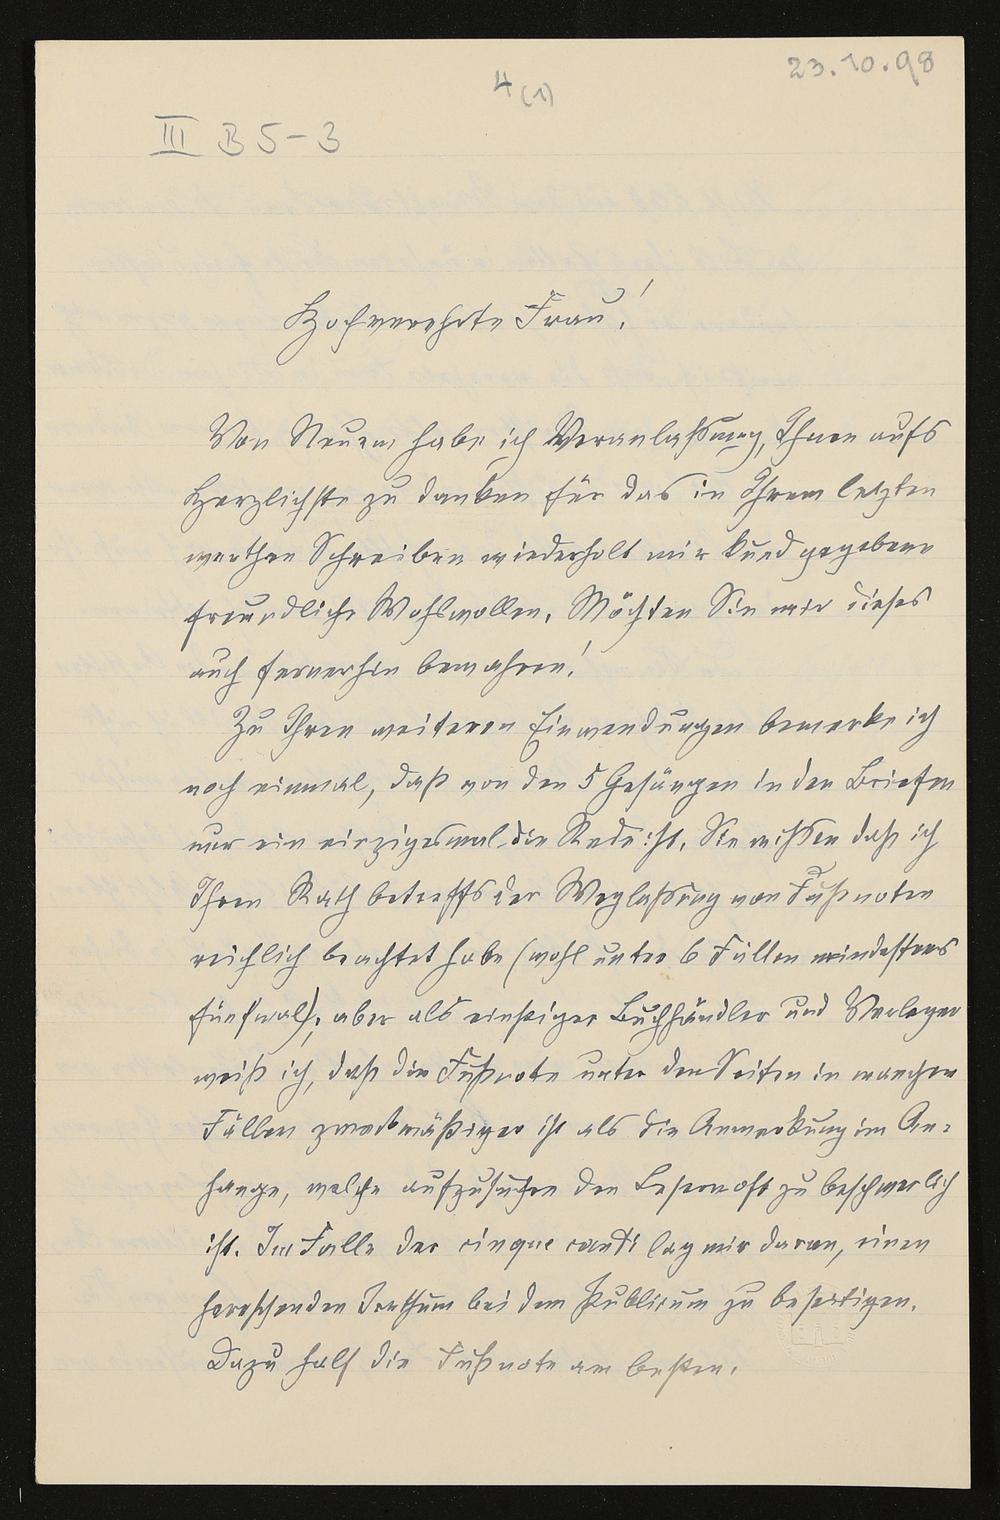 23.10.98
4 (1)
III B 5-3
Hochverehrte Frau!
Von Neuem habe ich Veranlaßung, Ihnen aufs
Herzlichste zu danken für das in Ihrem letzten
werthen Schreiben wiederholt mir kund gegebene
freundliche Wohlwollen. Möchten Sie mir dieses
auch fernerhin bewahren!
Zu Ihren weiteren Einwendungen bemerke ich
noch einmal, daß von den 5 Gesängen in den Briefen
nur ein einzigesmal die Rede ist. Sie wißen daß ich
Ihren Rath betreffs der Weglaßung von Fußnoten
reichlich beachtet habe (wohl unter 6 Fällen mindestens
fünfmal); aber als einstiger Buchhändler und Verleger
weiß ich, daß die Fußnote unter den Seiten in manchen
Fällen zweckmäßiger ist als die Anmerkung im An-
hange, welche aufzusuchen den Lesern oft zu beschwerlich
ist. Im Falle der cinque canti lag mir daran, einen
herrschenden Irrthum bei dem Publicum zu beseitigen.
Dazu half die Fußnote am besten.